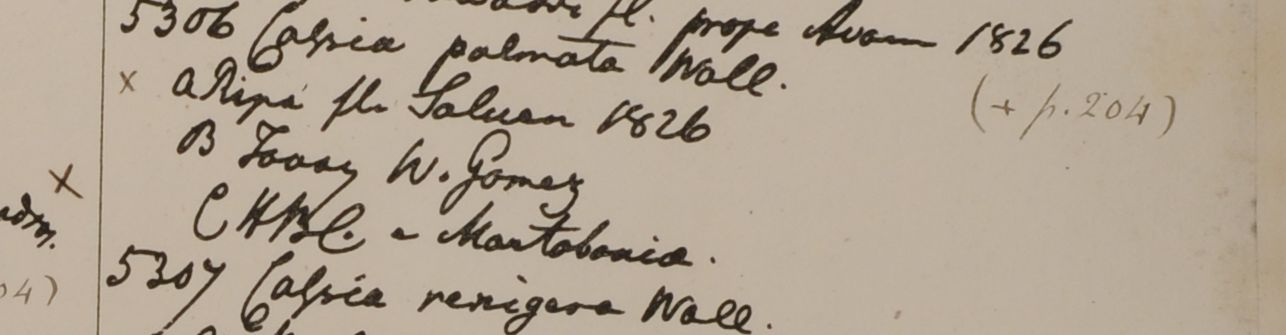 fl. prope Avam 1826
5306 Cassia palmata Wall.
x a Ripa fl. Saluen 1826 (+ p. 204)
B Tavoy W. Gomez
x
C HBC. e Martabania.
5307 Cassia renigera Wall.
04)